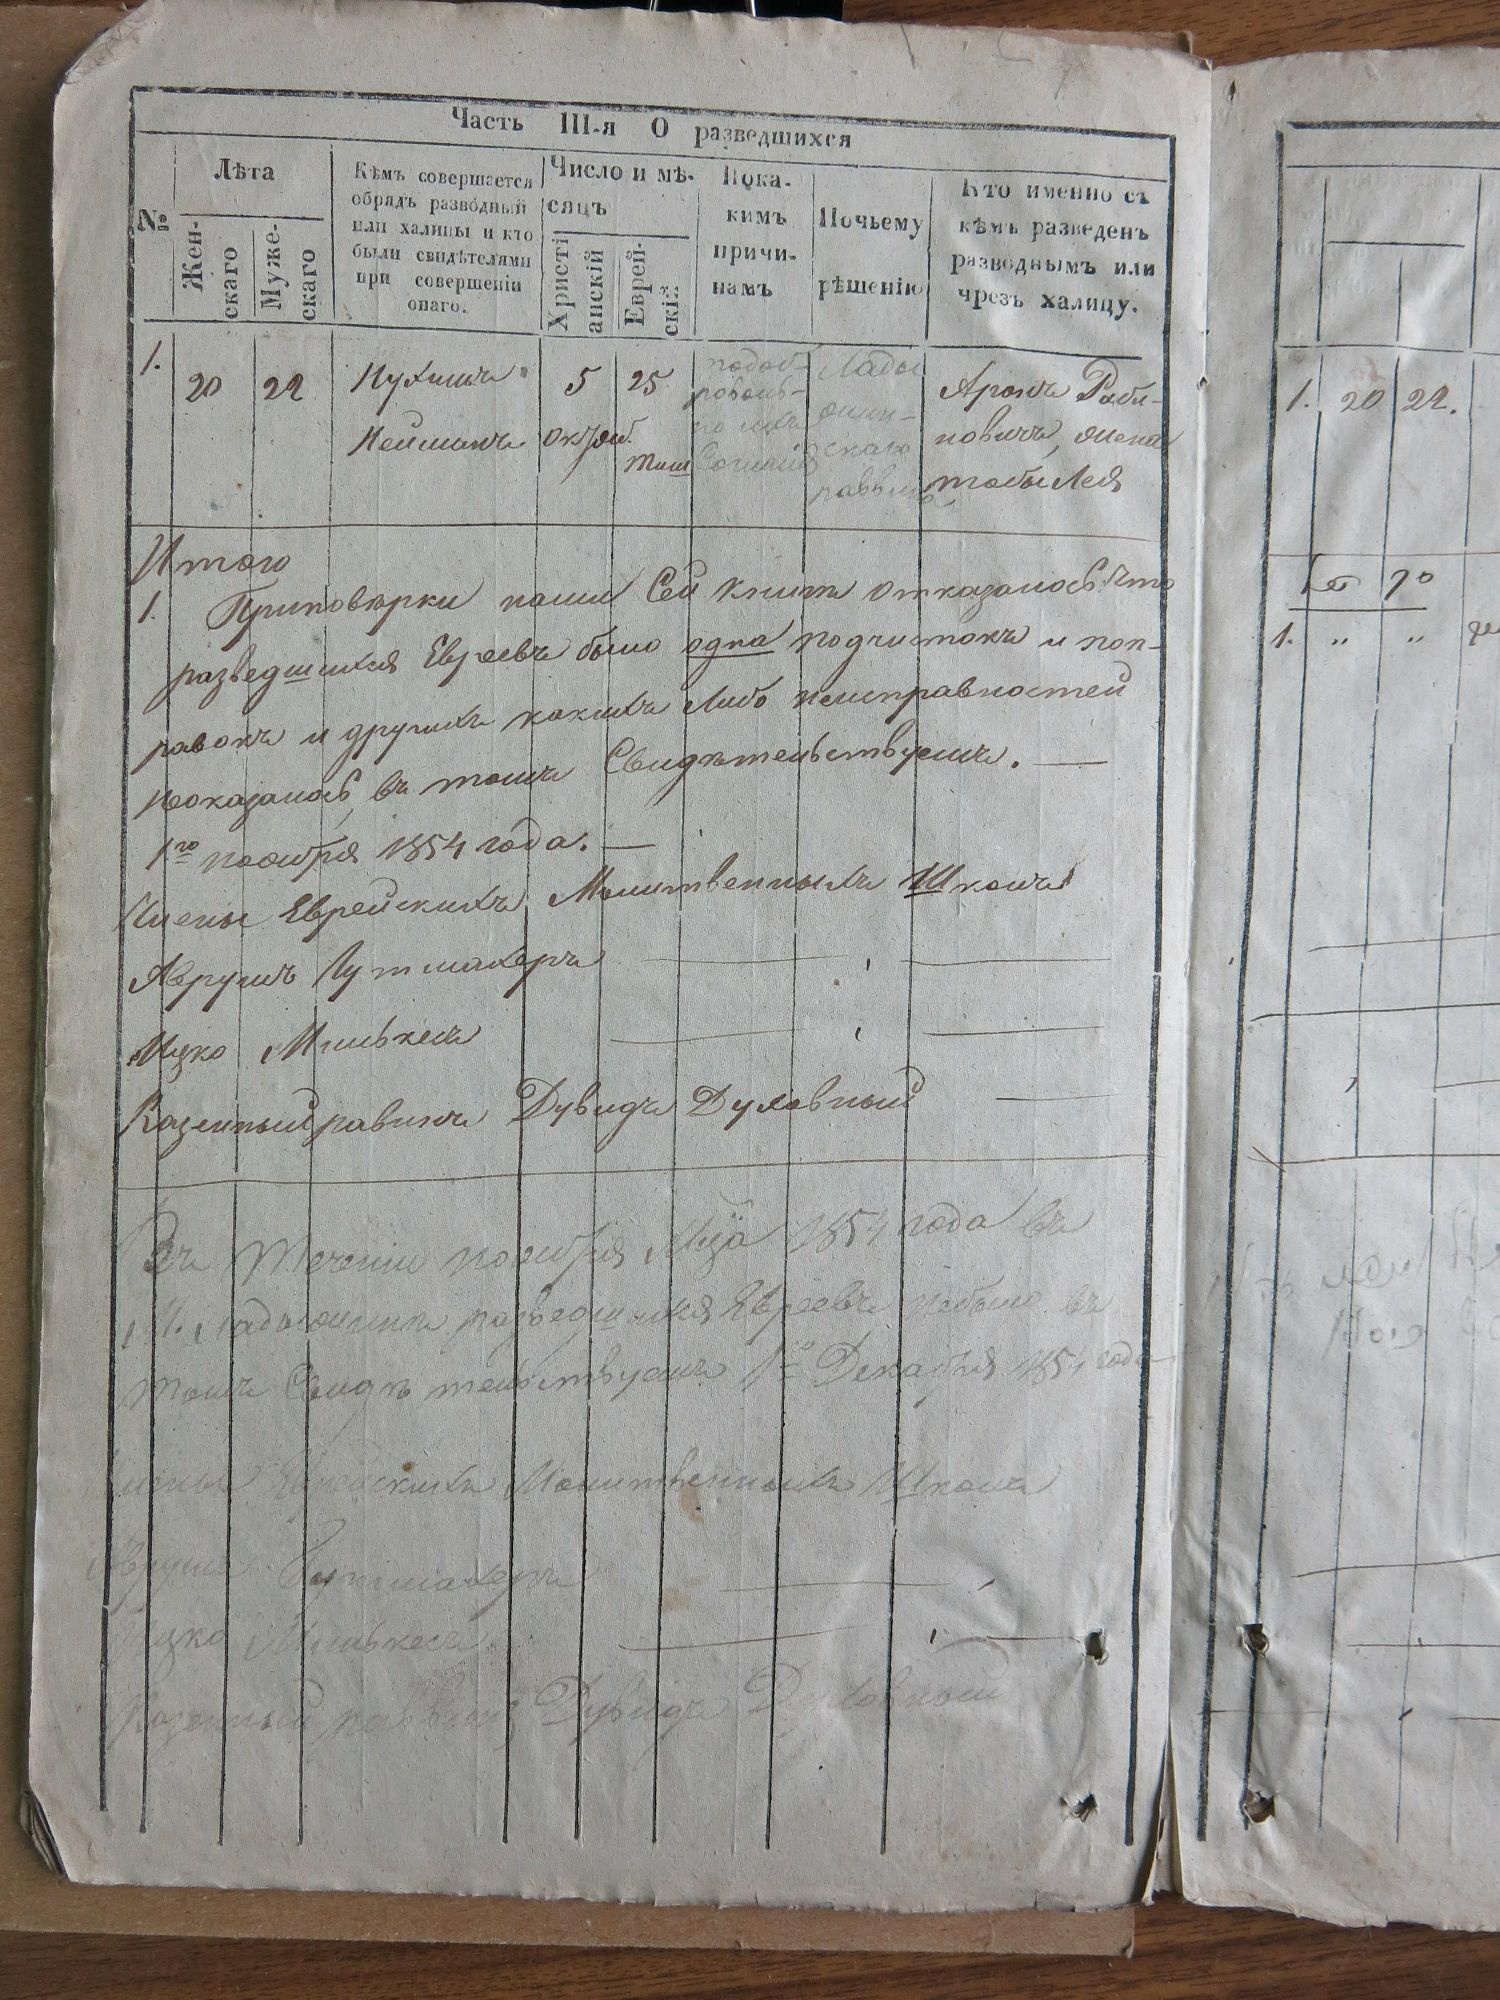 Часть III-я О разведшихся
№
Лѣта
Жен-
скаго
Муже-
скаго
Кѣмъ совершается
обрядъ разводный
или халицы и кто
были свидѣтелями
при совершеніи
онаго.
Число и мѣ-
сяцъ
Христі
анскій
Еврей-
скій
Пока-
кимъ
причи-
намъ
Почьему
рѣшенію
Кто именно съ
кѣмъ разведенъ
разводнымъ или
чрезъ халицу.
1.
20
22
Нухимъ
Нейманъ
5
октяб.
25
тиш
Лады
жин-
скаго
Аронъ Раби-
новичъ, жена
Лея
Итого
1. Приповѣрки нами Сей книги отказалось что
разведшихся Евреевъ было одна подчистокъ и поп-
равокъ и другихъ какихъ либо неисправностей
неоказалось, въ томъ Свидѣтельствуемъ. —
1го ноября 1854 года. —
Члены Еврейскихъ Молитвенныхъ Школъ
Аврумъ Гутмахеръ
Ицко Милькесъ
Казенный равинъ Дувидъ Духовный
Въ течении ноября Мца 1854 года въ
М. Ладыжинѣ разведшихся Евреевъ небыло въ
томъ Свидѣтельствуемъ 1го Декабря 1854 года
Члены Еврейскихъ Молитвенныхъ Школъ
Аврумъ Гутмахеръ
Ицко Милькесъ
Казенный раввинъ Дувидъ Духовный
1. 20 22.
1. " "